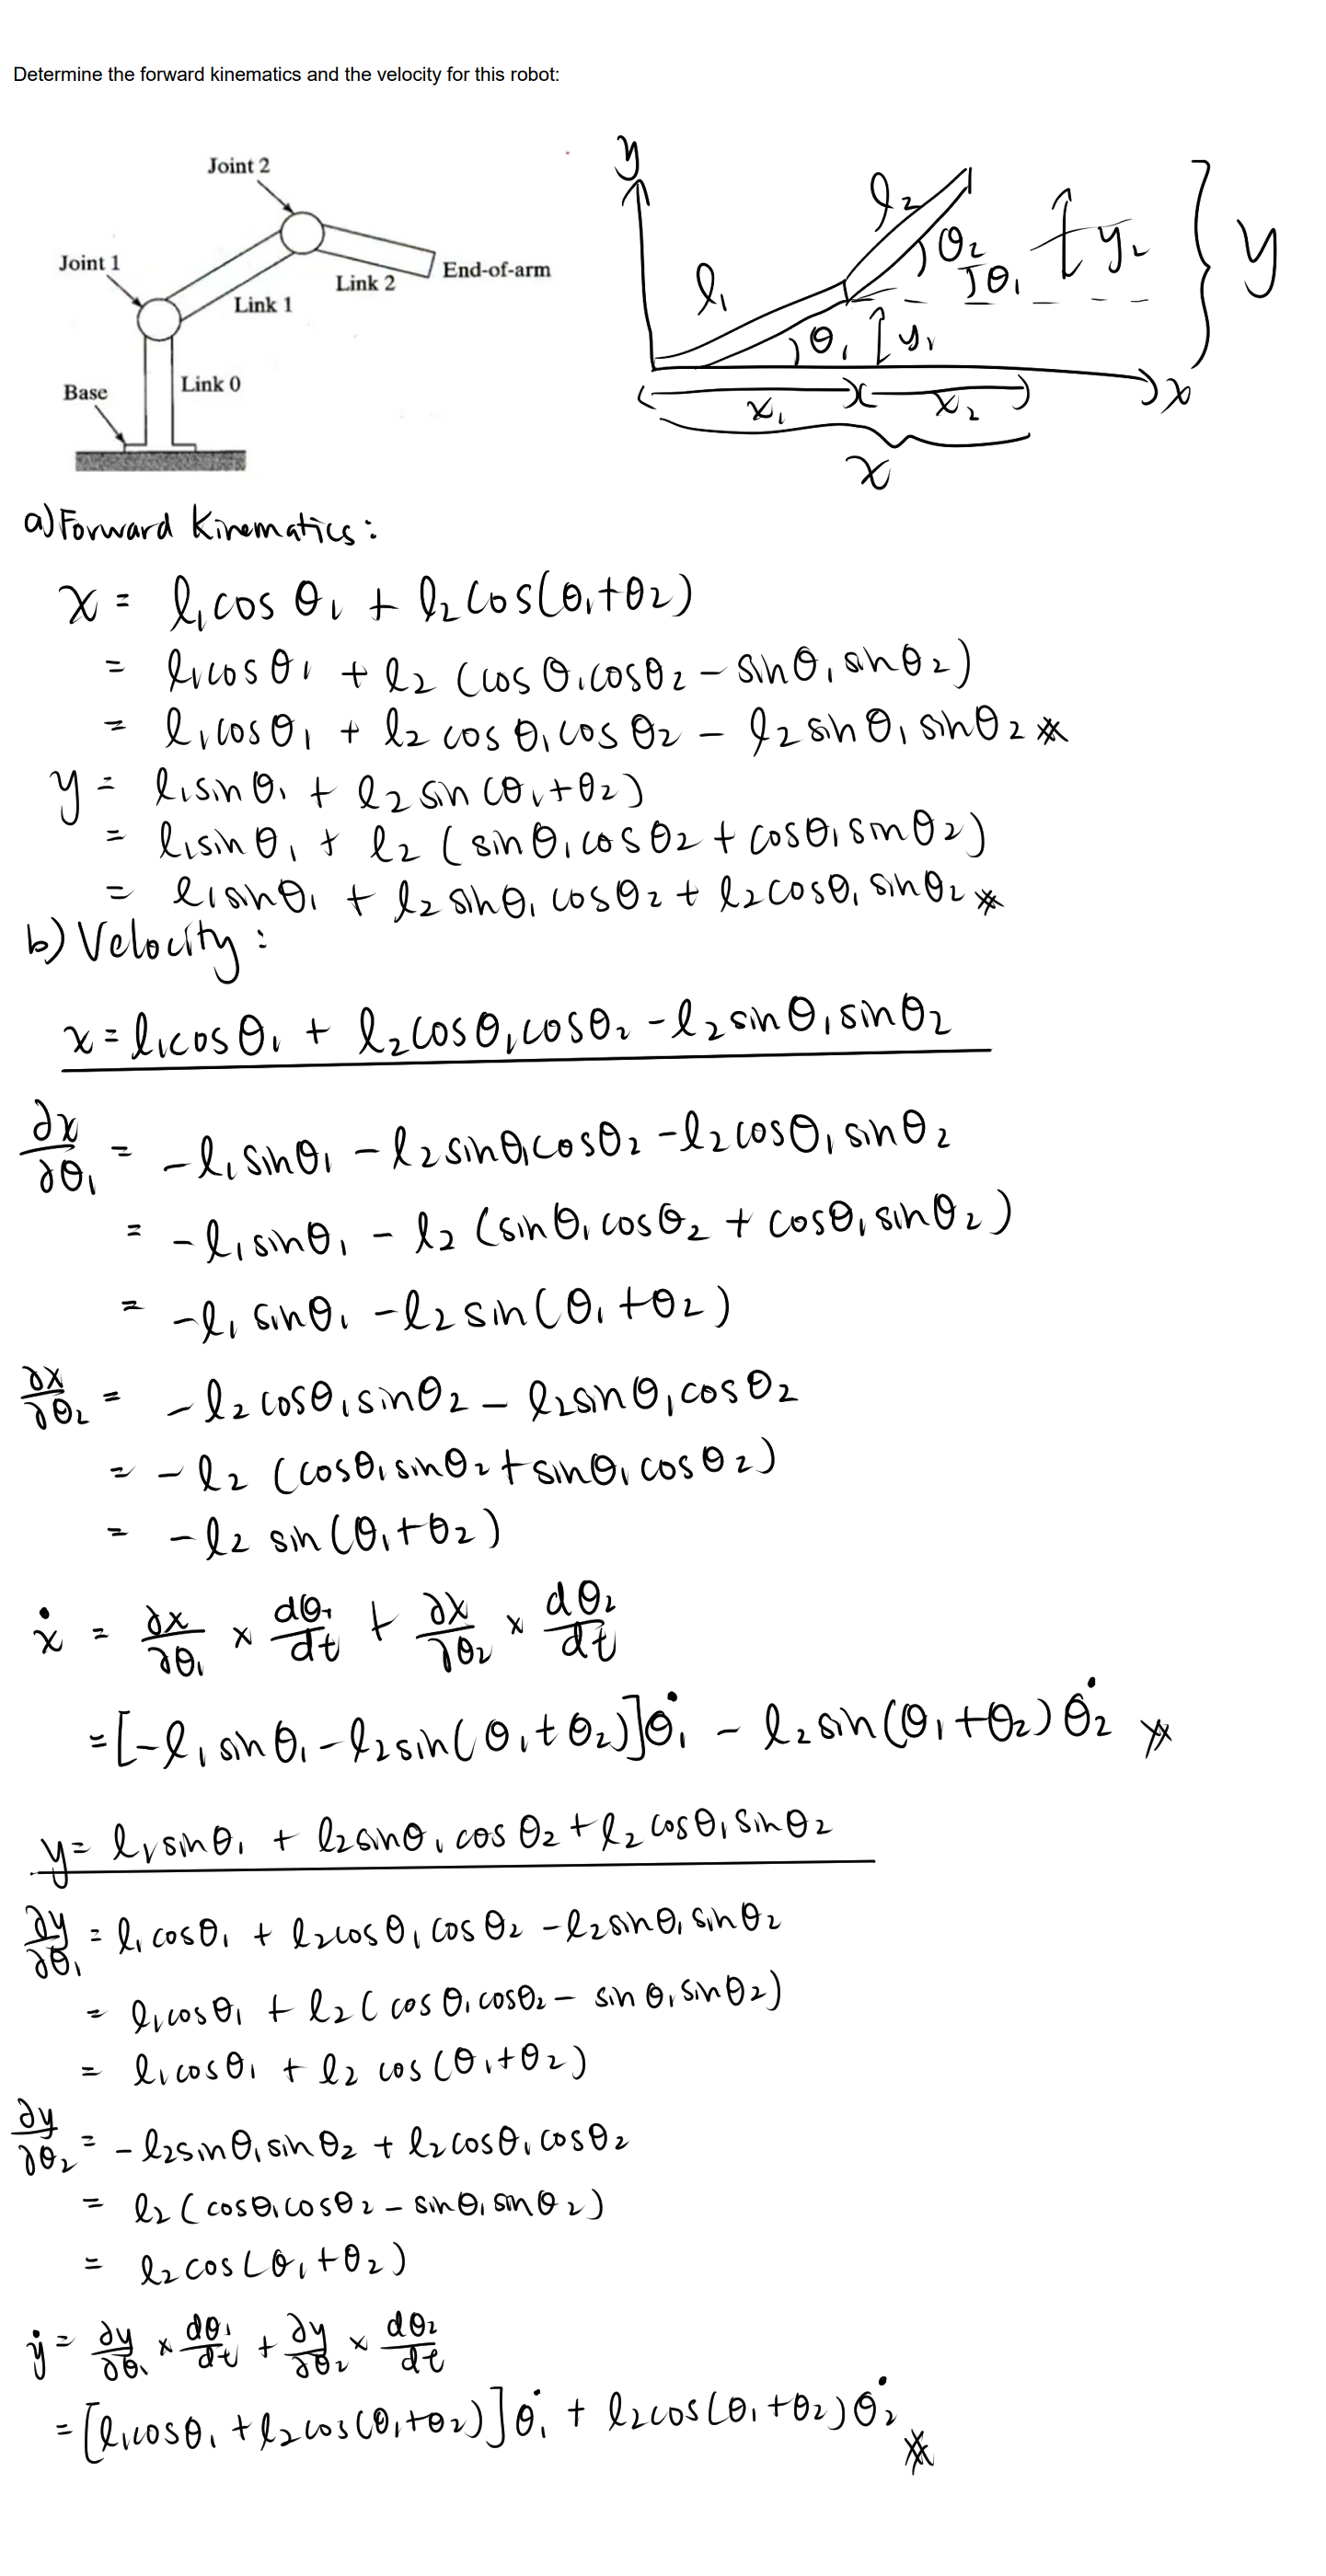 Determine the forward kinematics and the velocity for this robot:
Joint 2
Joint 1
Link 1
Link 2
End-of-arm
Base
Link 0
y
l₂
θ₂
y₂
y
l₁
θ₁
θ₁
y₁
x₁
x₂
x
x
a) Forward Kinematics:
x = l₁cos θ₁ + l₂cos(θ₁+θ₂)
= l₁cosθ₁ + l₂ (cosθ₁cosθ₂ – sinθ₁sinθ₂)
= l₁cosθ₁ + l₂ cosθ₁cosθ₂ – l₂sinθ₁sinθ₂ ※
y = l₁sinθ₁ + l₂sin(θ₁+θ₂)
= l₁sinθ₁ + l₂ (sinθ₁cosθ₂ + cosθ₁sinθ₂)
= l₁sinθ₁ + l₂sinθ₁cosθ₂ + l₂cosθ₁sinθ₂ ※
b) Velocity:
x = l₁cosθ₁ + l₂cosθ₁cosθ₂ – l₂sinθ₁sinθ₂
∂x/∂θ₁ = –l₁sinθ₁ – l₂sinθ₁cosθ₂ – l₂cosθ₁sinθ₂
= –l₁sinθ₁ – l₂ (sinθ₁cosθ₂ + cosθ₁sinθ₂)
= –l₁sinθ₁ – l₂sin(θ₁+θ₂)
∂x/∂θ₂ = –l₂cosθ₁sinθ₂ – l₂sinθ₁cosθ₂
= –l₂ (cosθ₁sinθ₂ + sinθ₁cosθ₂)
= –l₂ sin(θ₁+θ₂)
ẋ = ∂x/∂θ₁ × dθ₁/dt + ∂x/∂θ₂ × dθ₂/dt
= [–l₁sinθ₁ – l₂sin(θ₁+θ₂)]θ̇₁ – l₂sin(θ₁+θ₂)θ̇₂ ※
y = l₁sinθ₁ + l₂sinθ₁cosθ₂ + l₂cosθ₁sinθ₂
∂y/∂θ₁ = l₁cosθ₁ + l₂cosθ₁cosθ₂ – l₂sinθ₁sinθ₂
= l₁cosθ₁ + l₂(cosθ₁cosθ₂ – sinθ₁sinθ₂)
= l₁cosθ₁ + l₂ cos(θ₁+θ₂)
∂y/∂θ₂ = –l₂sinθ₁sinθ₂ + l₂cosθ₁cosθ₂
= l₂(cosθ₁cosθ₂ – sinθ₁sinθ₂)
= l₂cos(θ₁+θ₂)
ẏ = ∂y/∂θ₁ × dθ₁/dt + ∂y/∂θ₂ × dθ₂/dt
= [l₁cosθ₁ + l₂cos(θ₁+θ₂)]θ̇₁ + l₂cos(θ₁+θ₂)θ̇₂ ※